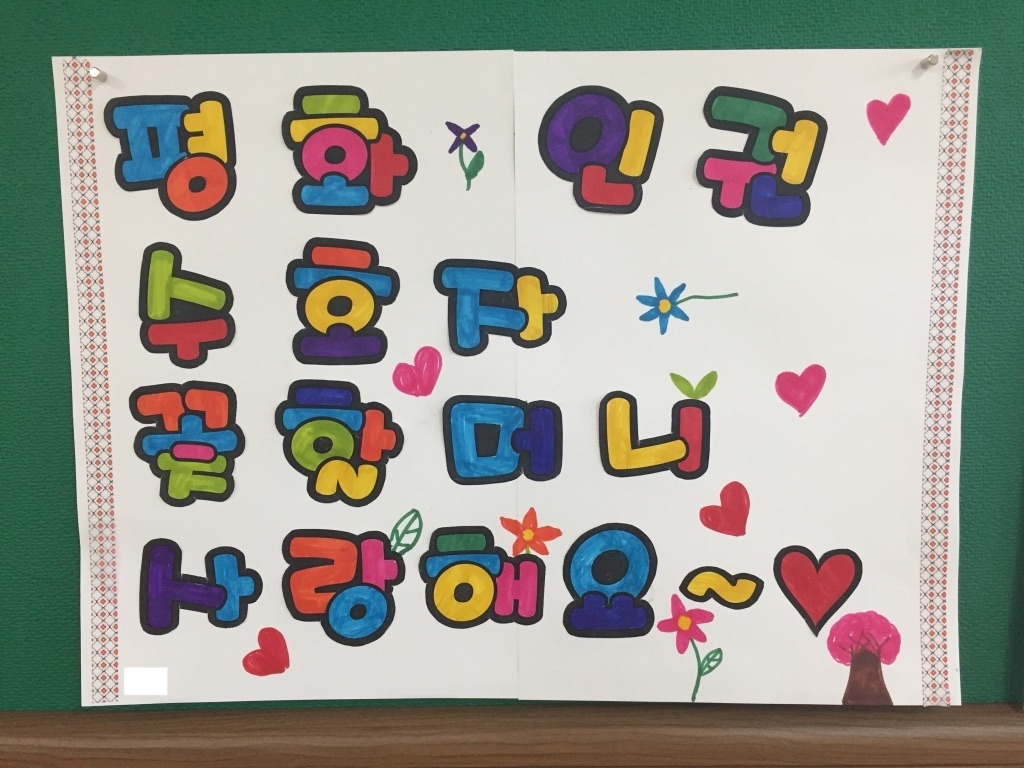 평화 인권
수호자
꽃할머니
사랑해요~♥